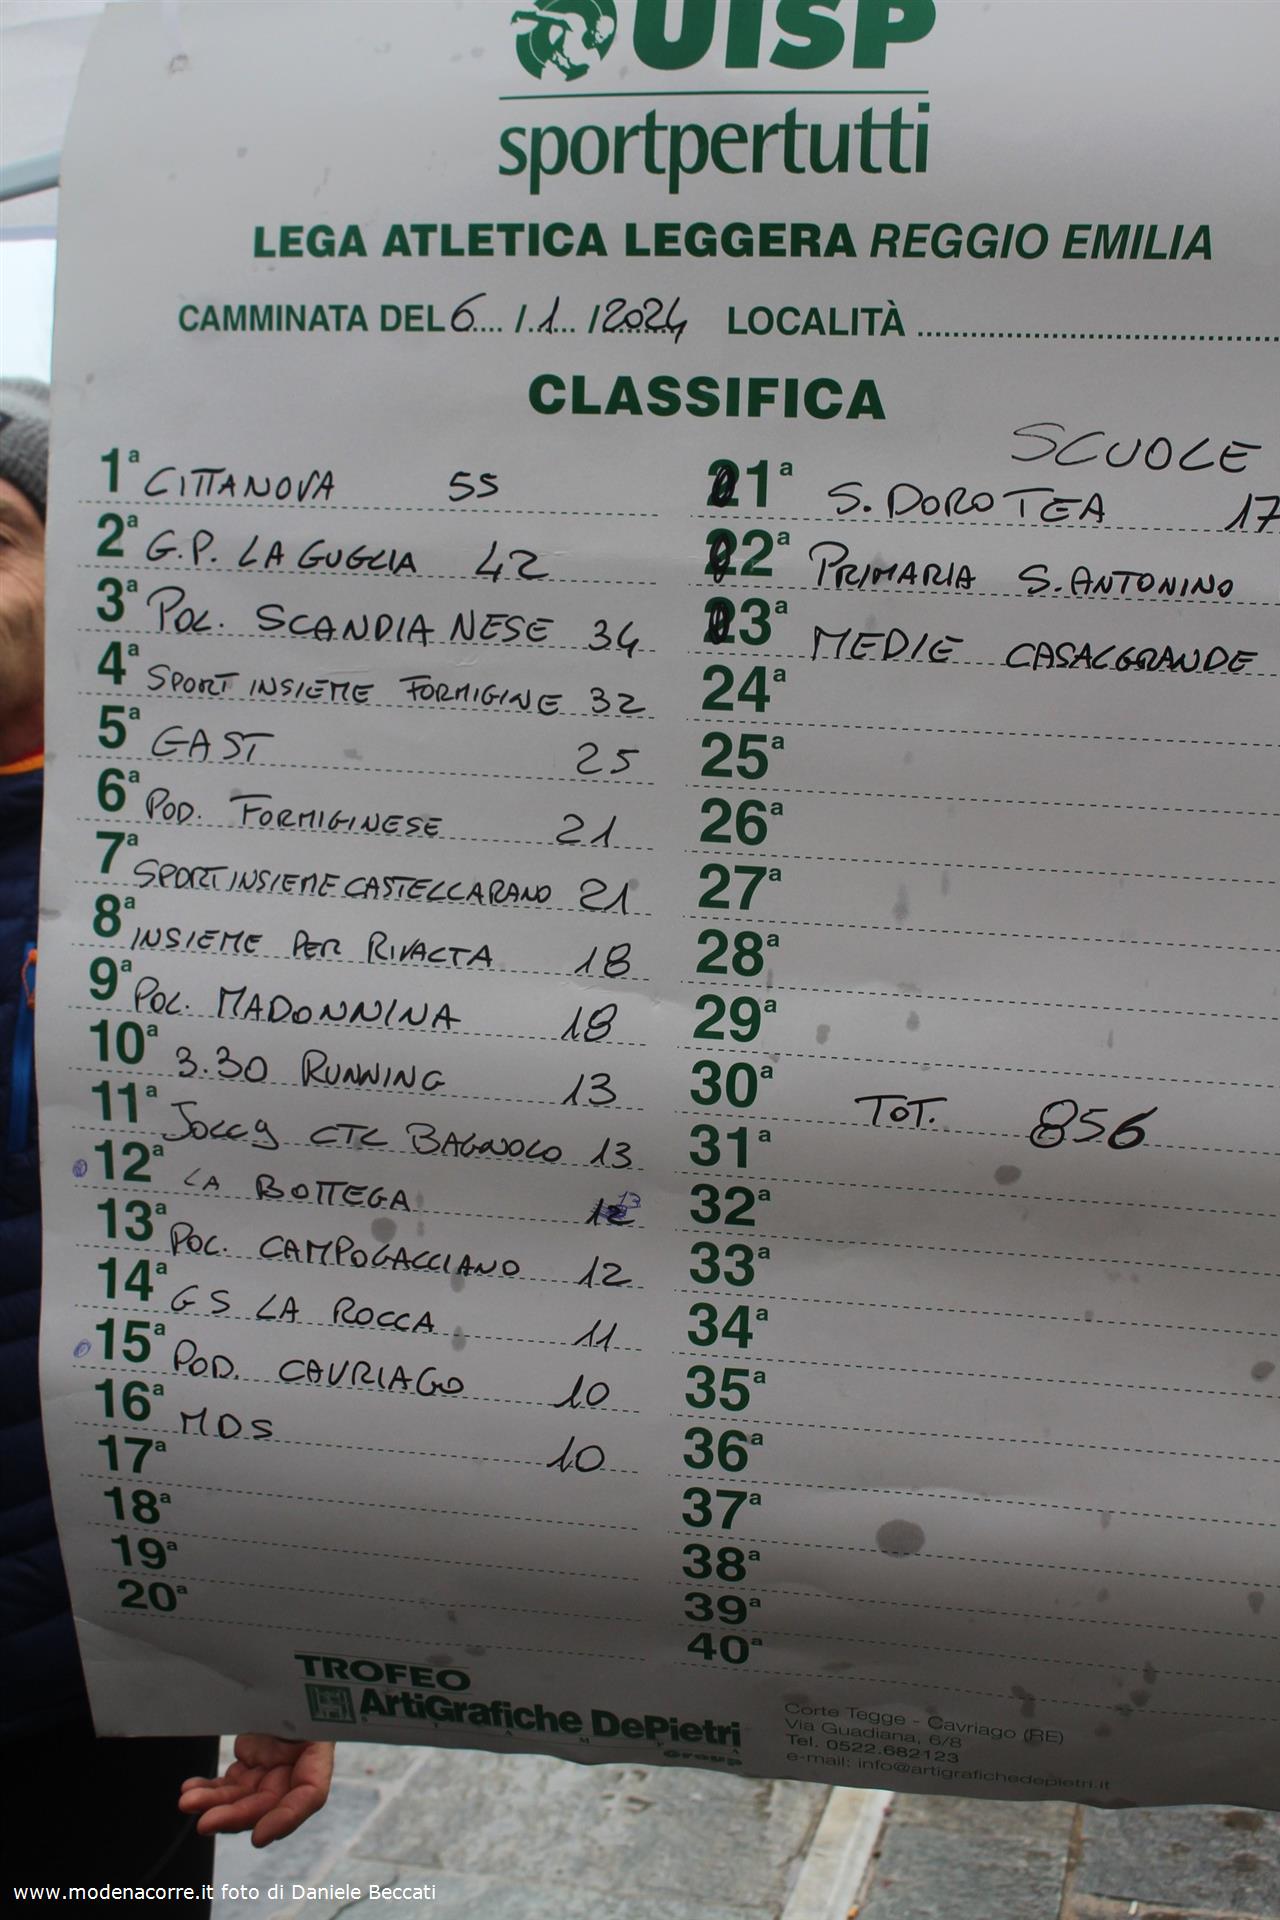 UISP
sportpertutti
LEGA ATLETICA LEGGERA REGGIO EMILIA
CAMMINATA DEL 6.... / .1.... / 2024 LOCALITÀ
CLASSIFICA
1ª CITTANOVA 55
2ª G.P. LA GUGLIA 42
3ª POL. SCANDIANESE 34
4ª SPORTINSIEME FORMIGINE 32
5ª GAST 25
6ª POD. FORMIGINESE 21
7ª SPORTINSIEME CASTELLARANO 21
8ª INSIEME PER RIVALTA 18
9ª POL. MADONNINA 18
10ª 3.30 RUNNING 13
11ª JOLLY CTL BAGNOLO 13
12ª LA BOTTEGA 13
13ª POL. CAMPOGALLIANO 12
14ª GS LA ROCCA 11
15ª POD. CAVRIAGO 10
16ª MDS 10
17ª
18ª
19ª
20ª
SCUOLE
01ª S. DOROTEA 17
02ª PRIMARIA S. ANTONINO
03ª MEDIE CASALGRANDE
24ª
25ª
26ª
27ª
28ª
29ª
30ª TOT. 856
31ª
32ª
33ª
34ª
35ª
36ª
37ª
38ª
39ª
40ª
TROFEO
ArtiGrafiche DePietri
Group
Corte Tegge - Cavriago (RE)
Via Guadiana, 6/8
Tel. 0522.682123
e-mail: info@artigrafichedepietri.it
www.modenacorre.it foto di Daniele Beccati